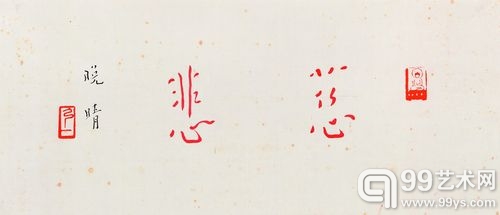 慈悲
晚晴
99艺术网
www.99ys.com